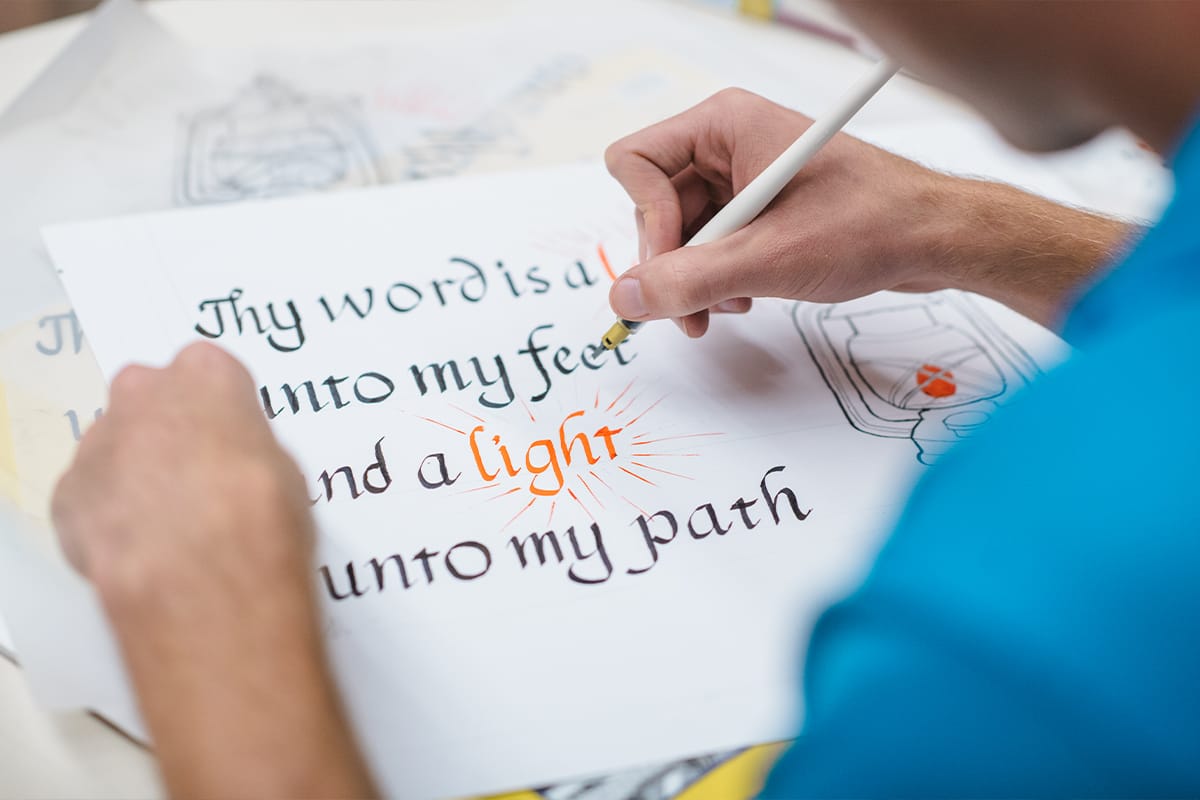 Thy word is a
unto my feet
and a light
unto my path